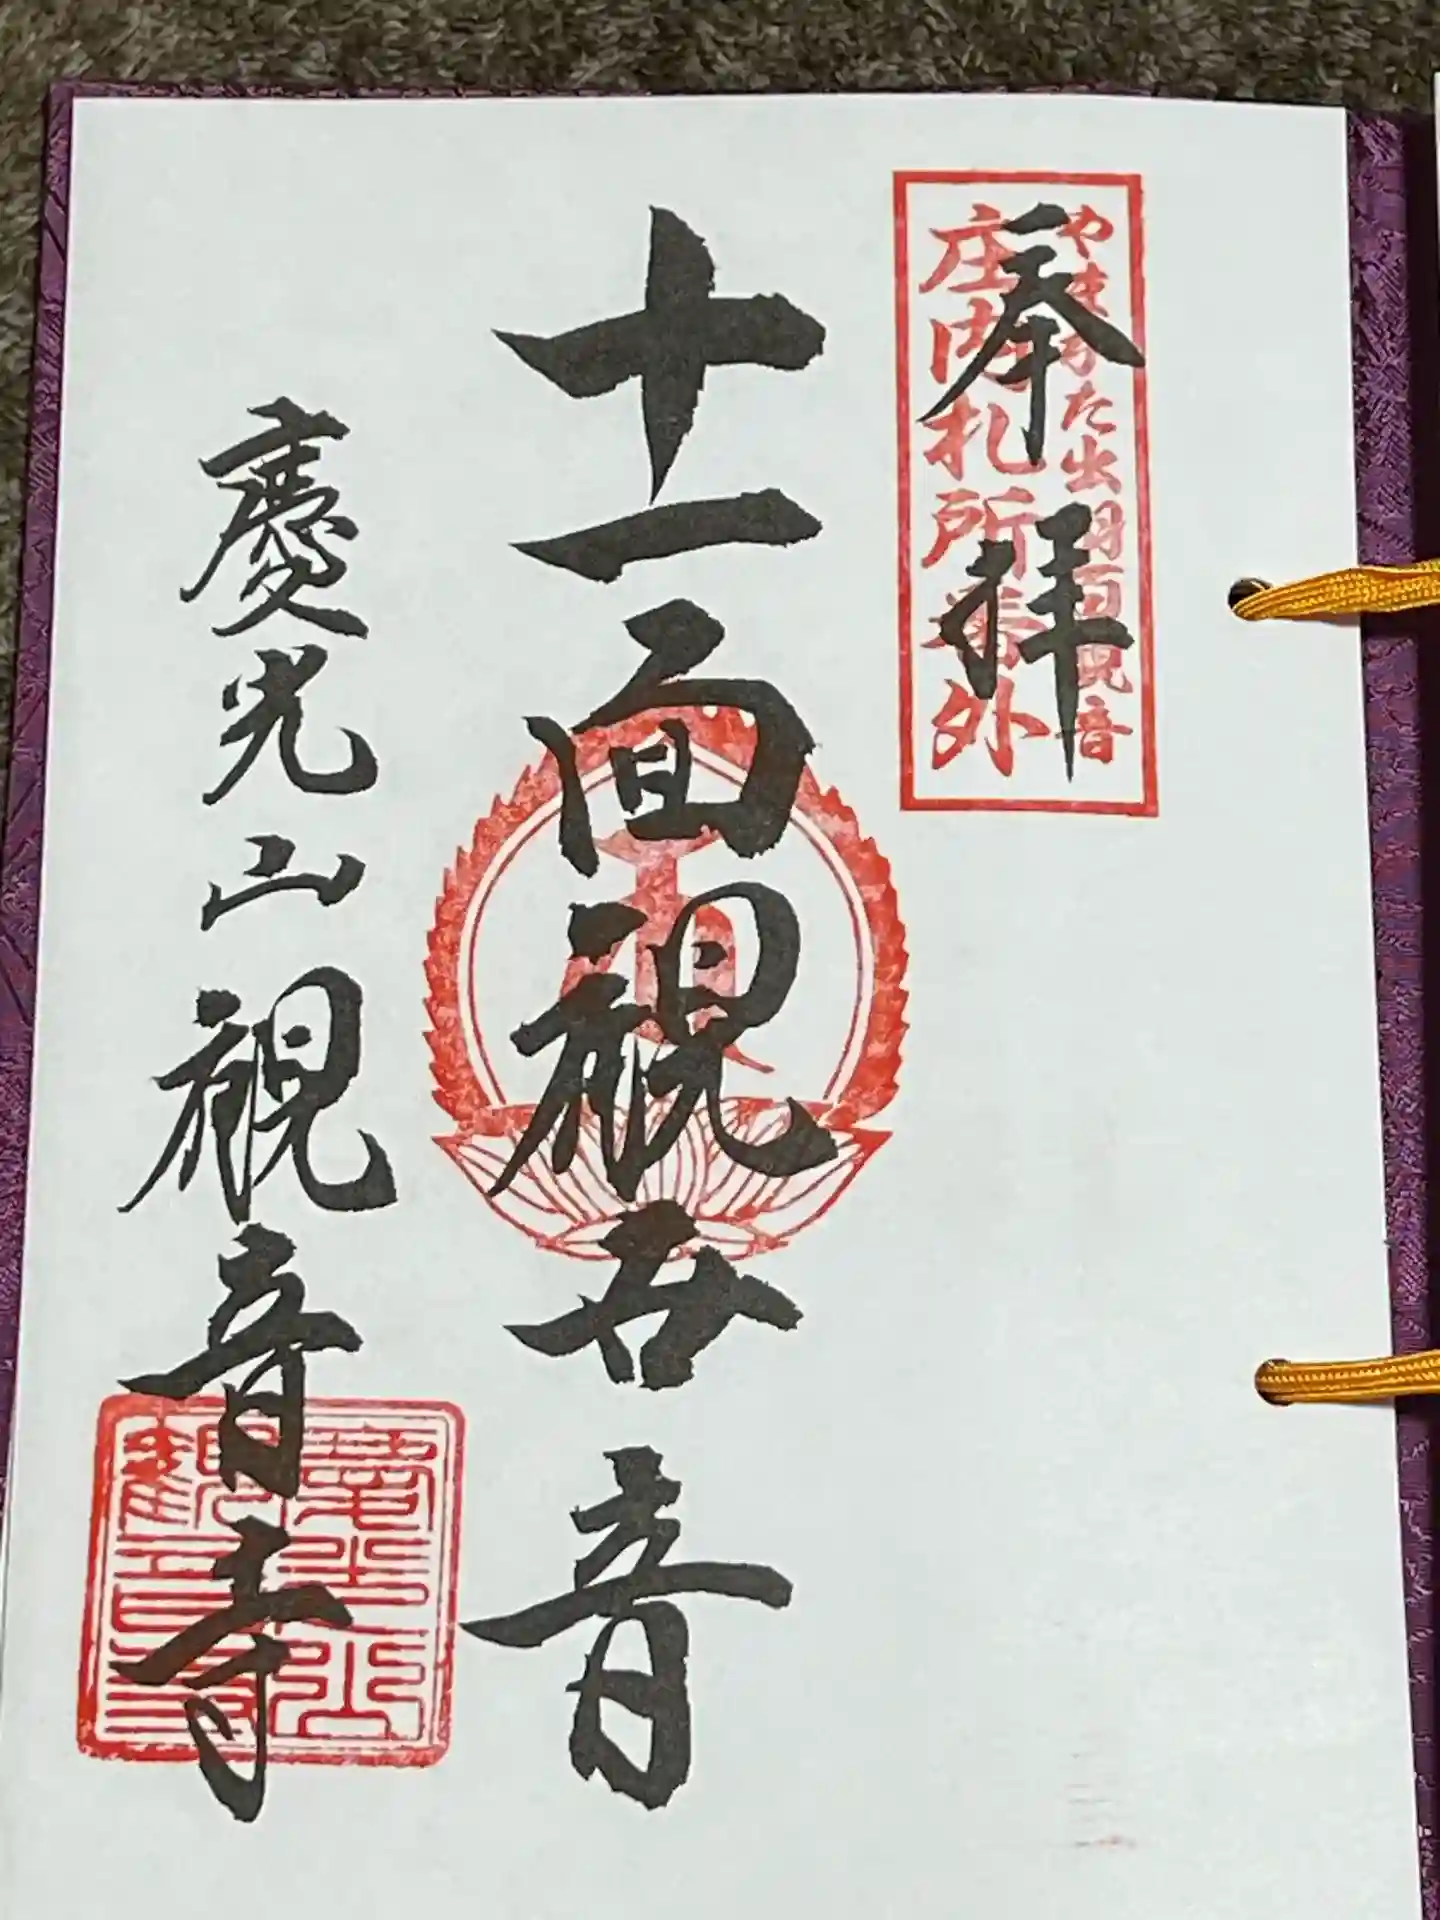 奉拝
やまがた出羽百観音
庄内札所番外
十一面観世音
慶光山観音寺
慶光山
觀音寺